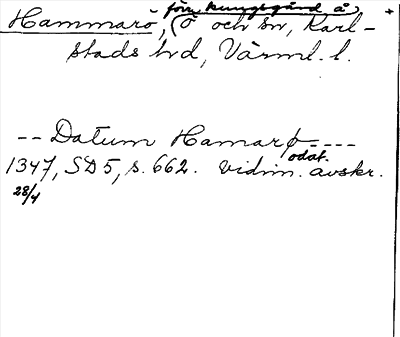 förr kungsgård å
Hammarö, (ö och sn, Karl-
stads hd, Värml. l.
-- Datum Hamarø ----
odat.
1347, SD5, s. 662. vidim. avskr.
28/4